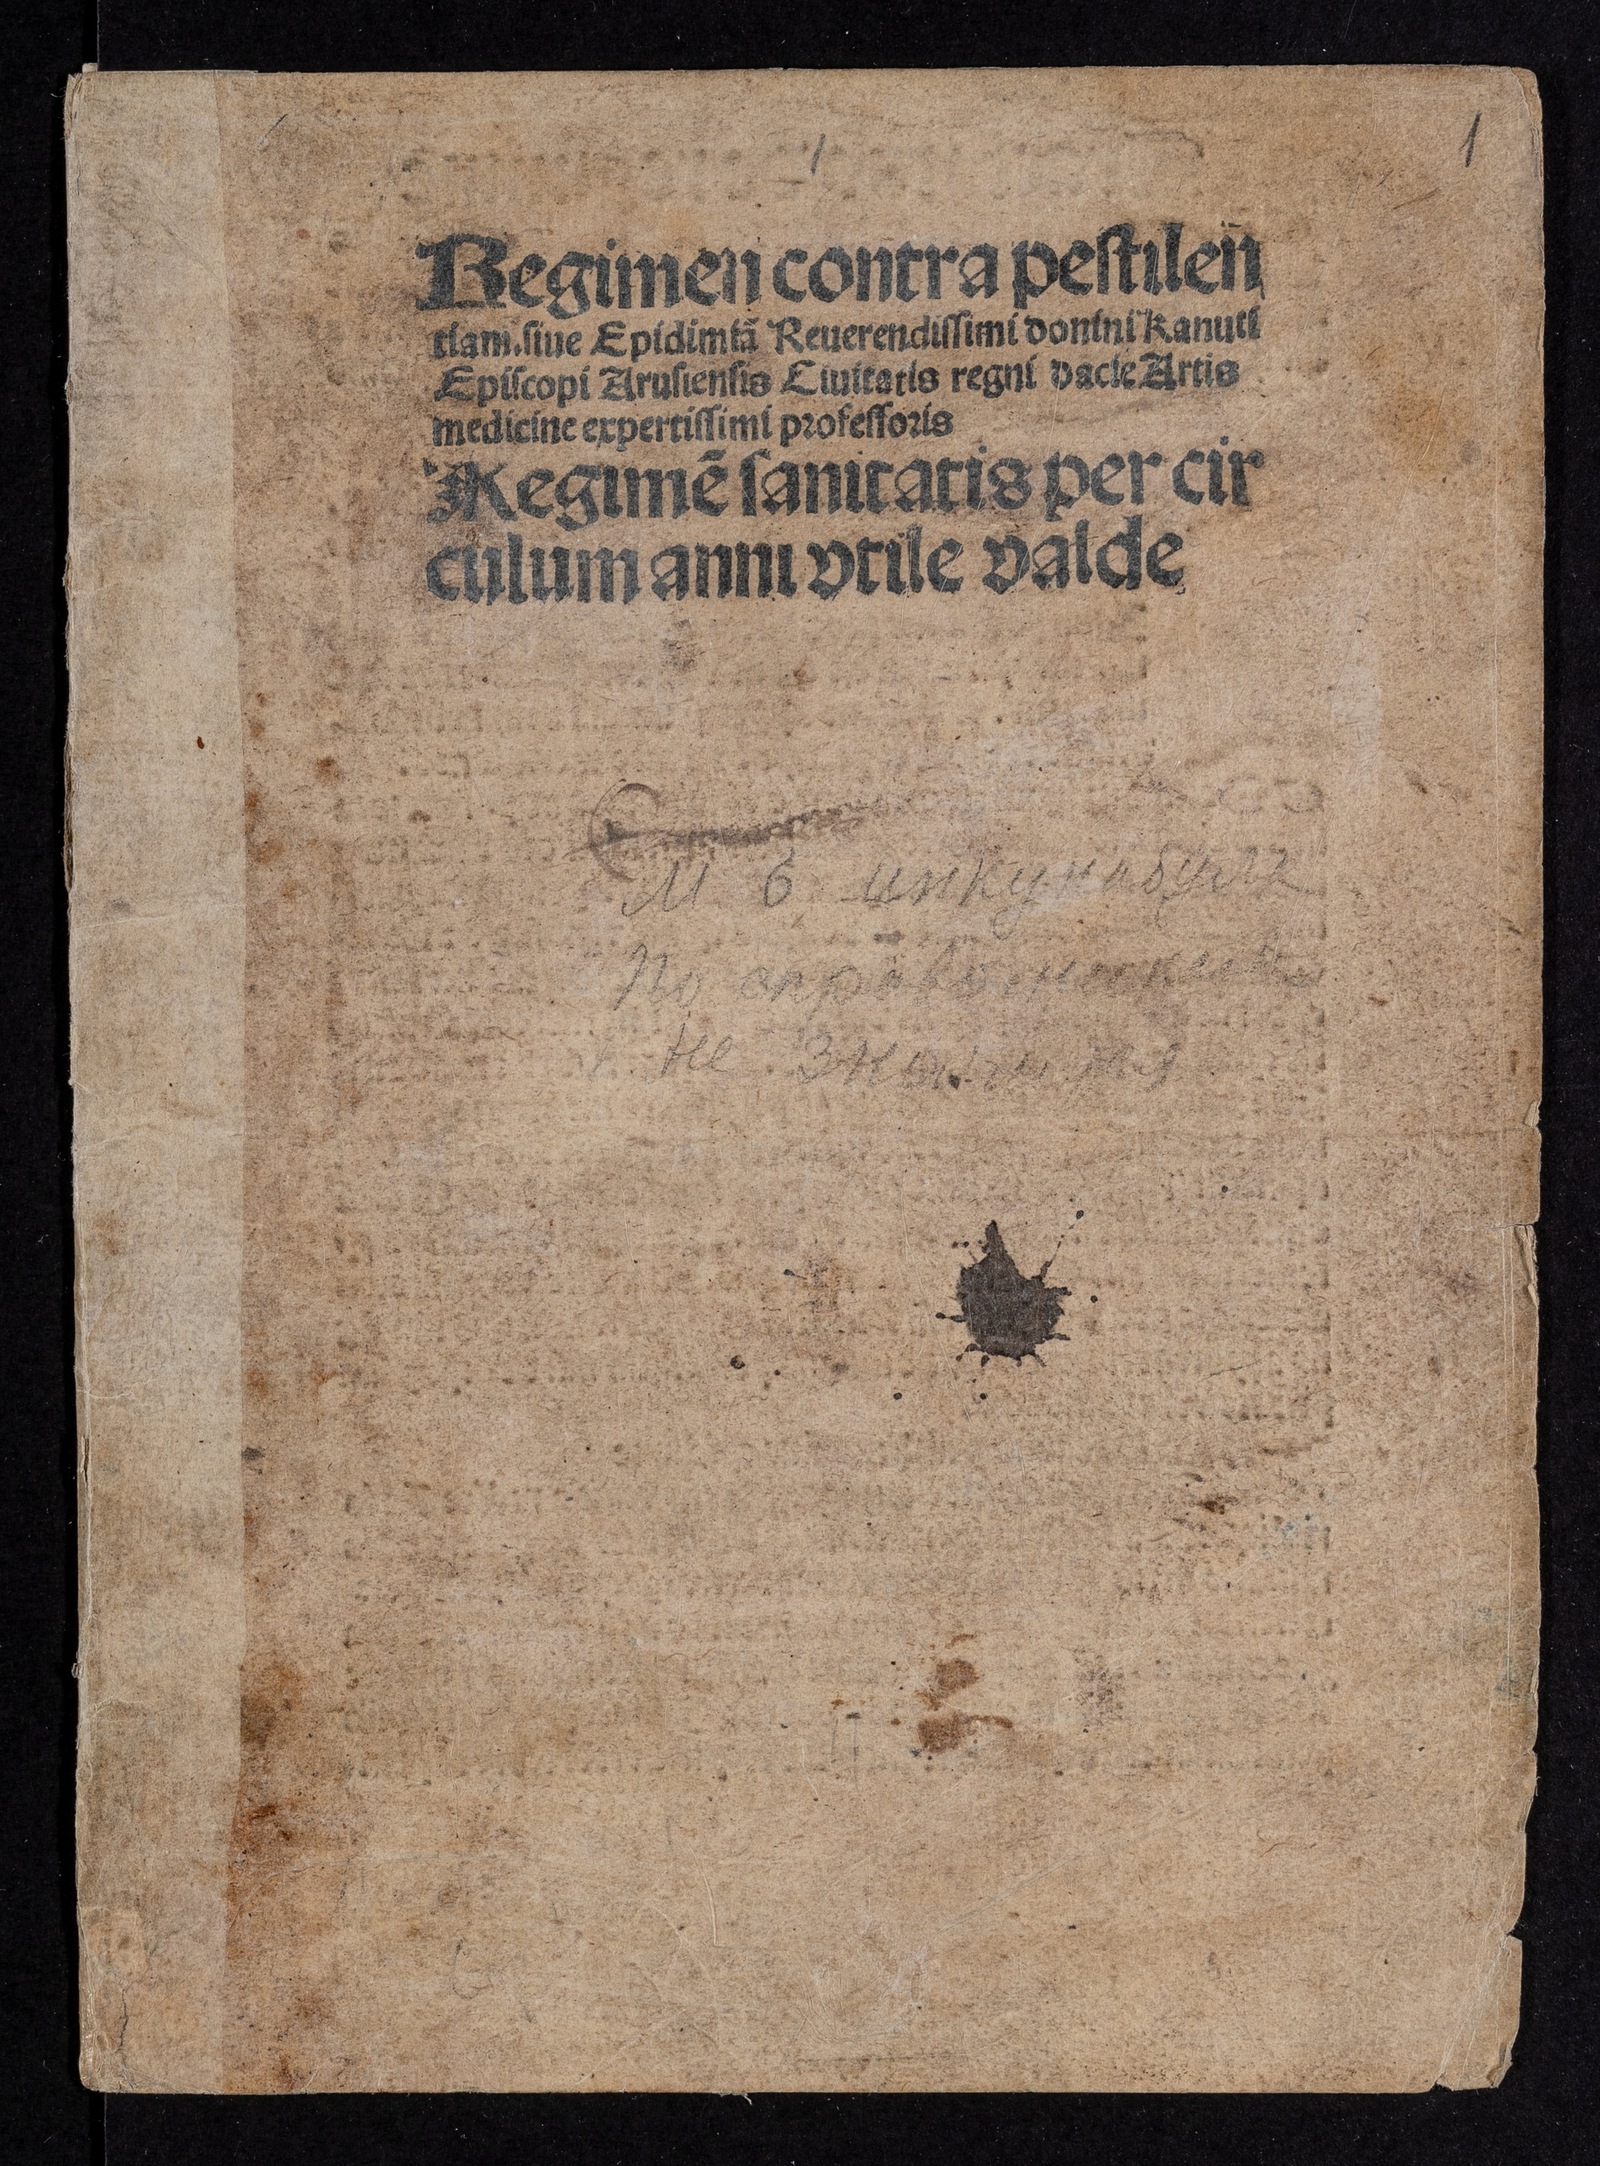 1
1
Regimen contra pestilen̄
tiam.siue Epidimiā Reuerendissimi donini kanuti
Episcopi Arusiensis Ciuitatis regni dacie Artis
medicine expertissimi professoris
Regimē sanitatis per cir
culum anni vtile valde
инкунабула
По
не